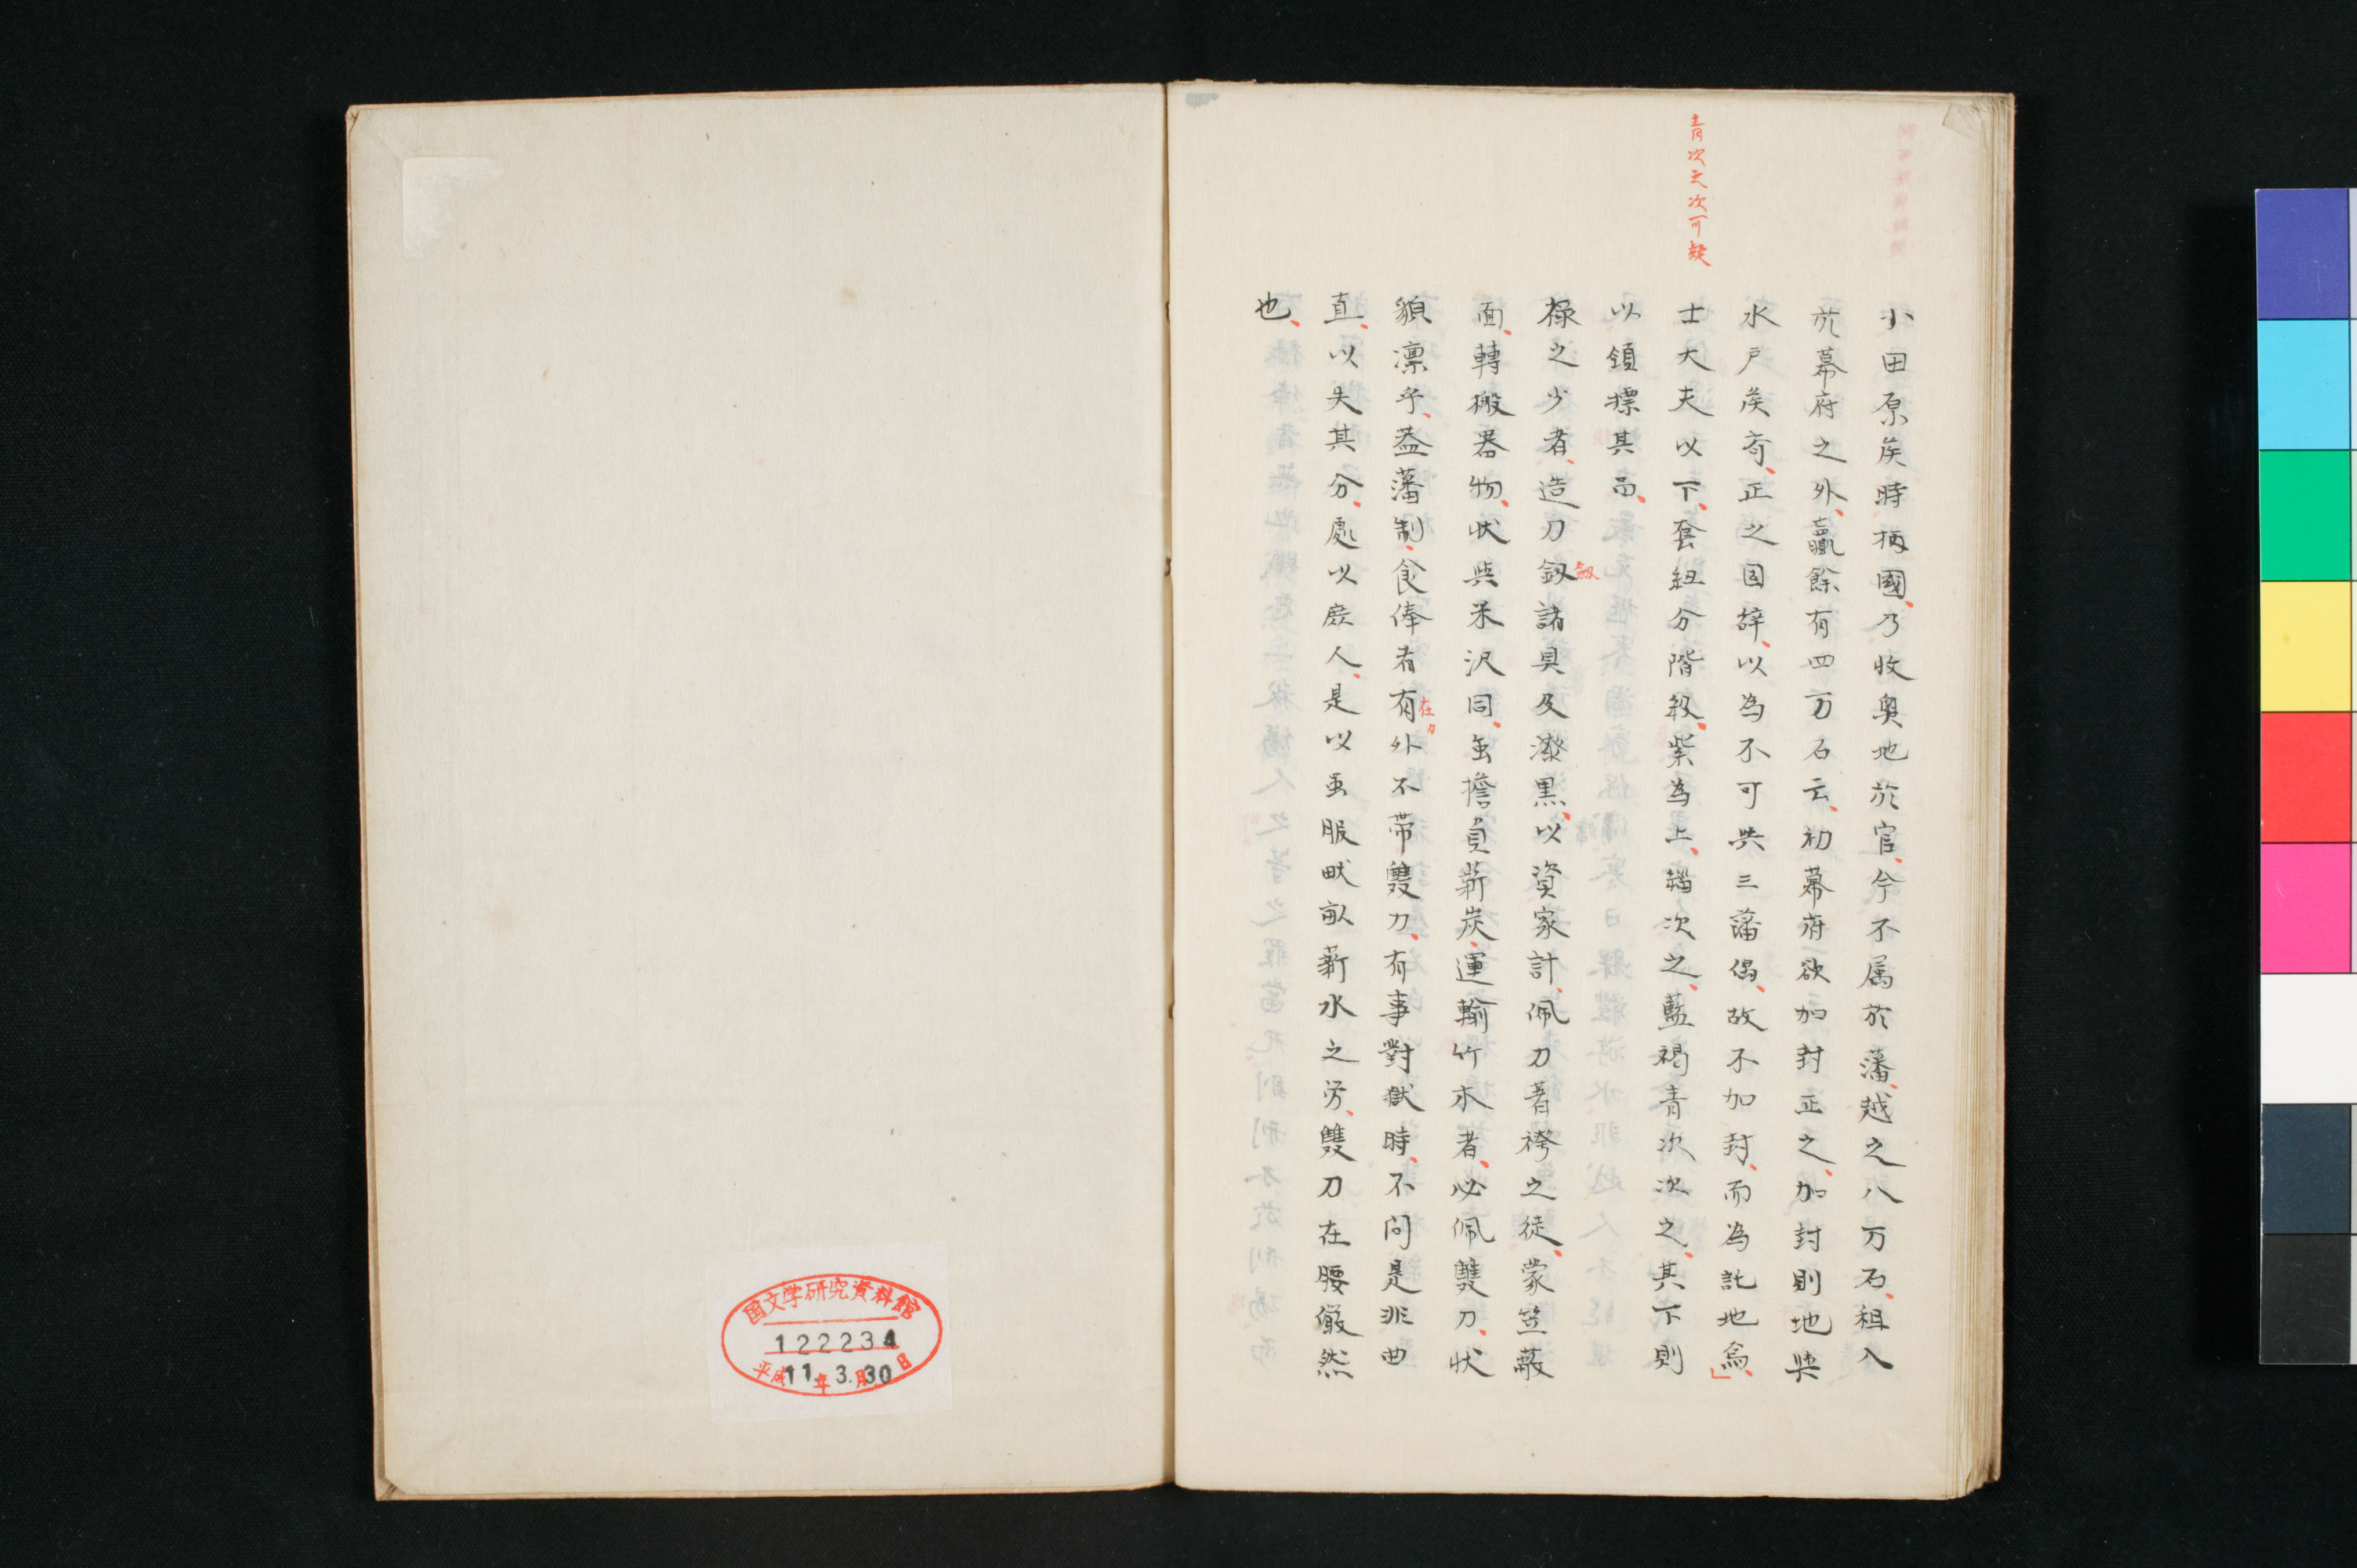 青次之次可疑
小田原矦時柄國、乃收奥地於官、今不属於藩、越之八万石、租入
於幕府之外、贏餘有四万石云、初幕府欲加封正之、加封則地與
水戸矦斉、正之固辞、以為不可与三藩偶、故不加封、而為託地焉、」
士大夫以下、套紐分階級、紫為上、緇次之、藍褐青次次之、其下則
以領標其品、
禄之少者、造刀釼諸具及漆黒、以資家計、佩刀著袴之徒、蒙笠蔽
劔
面、轉搬器物、状與米沢同、虽擔負薪炭、運輸竹木者、必佩雙刀、状
貌凛乎、葢藩制、食俸者有外不帯雙刀、有事對獄時、不問是非曲
在カ
直、以失其分、處以庶人、是以虽服畎畝薪水之労、雙刀在腰儼然
也、
国文学研究資料館
122234
平成11年3.月30日